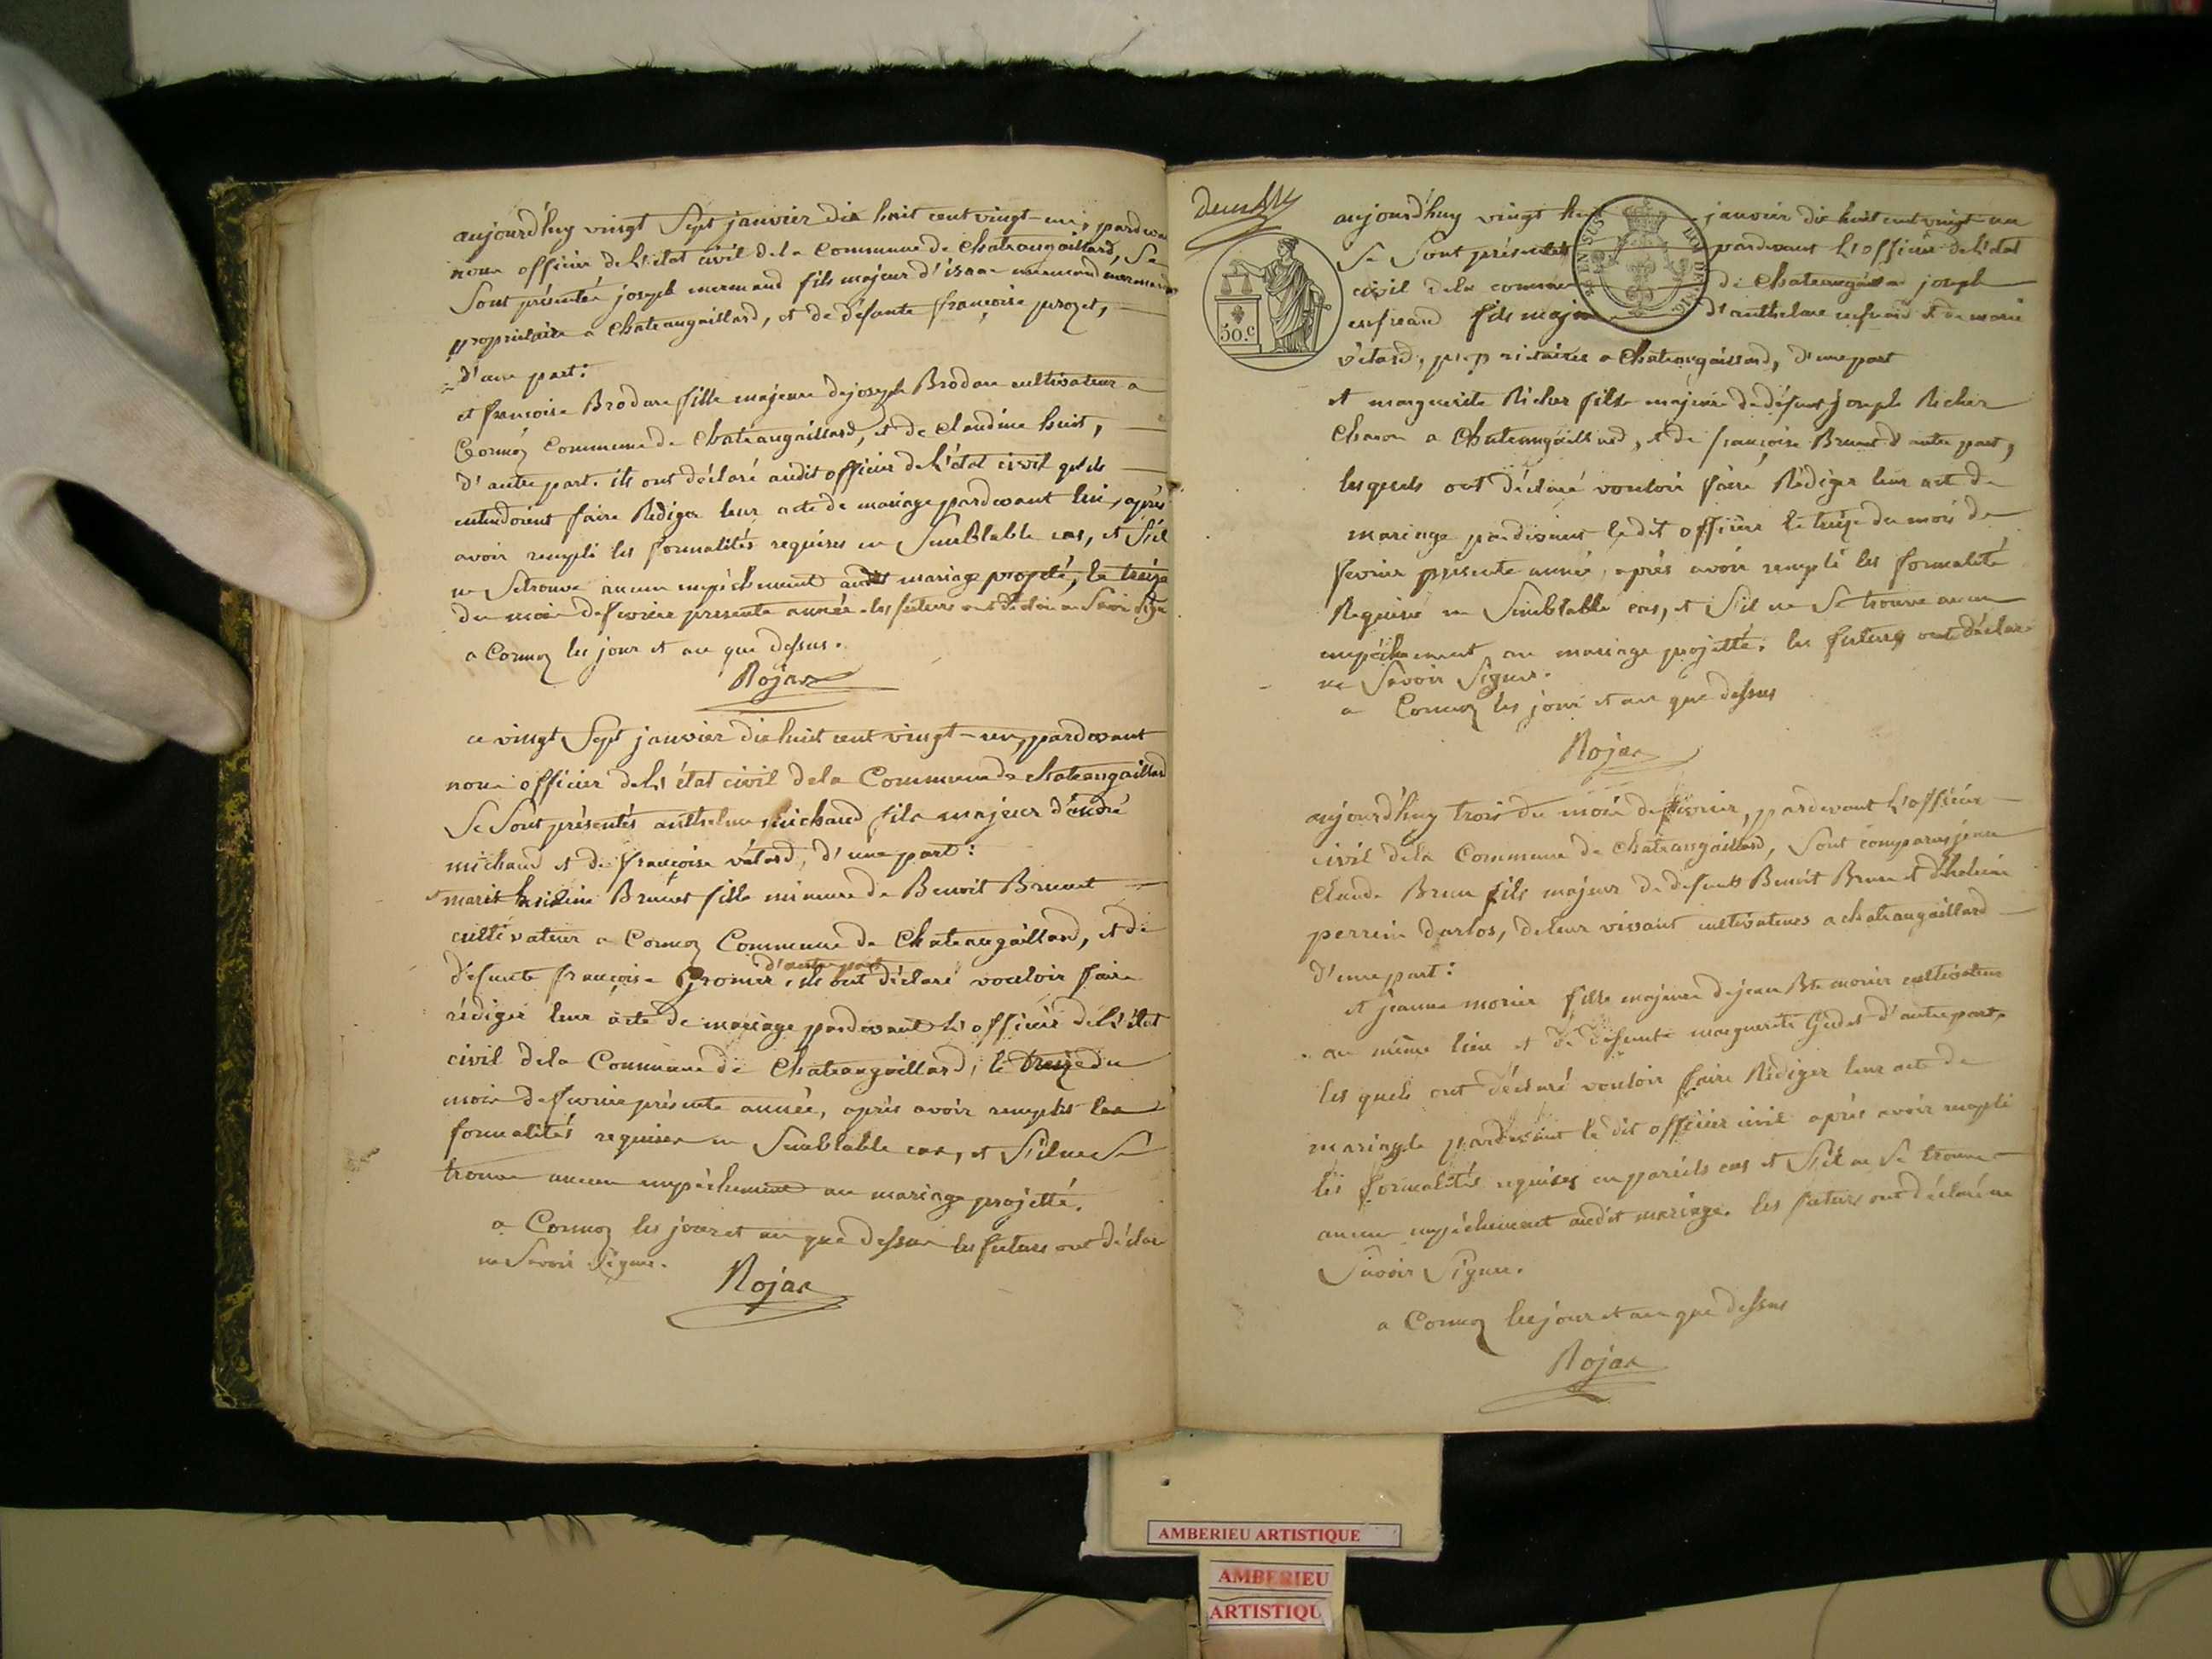 aujourd'huy vingt Sept janvier dix huit cent vingt-un, pardevant
nous officier de l'état civil de la Commune de chateaugaillard, Se
Sont présentés joseph mermand fils majeur d'isaac mermand
propriétaire a Chateaugaillard, et de défunte françoise prozet,
d'une part:
et françoise Brodare fille majeure de joseph Brodare cultivateur a
Cormoz Commune de Chateaugaillard, et de claudine huit,
d'autre part. ils ont déclaré audit officier de l'état civil qu'ils
entendoient faire Rédiger leur acte de mariage pardevant lui, après
avoir rempli les formalités requises en Semblable cas, et S'il
ne Setrouve aucun empêchement audit mariage projeté, le treize
du mois de fevrier presente année. les futurs ont déclaré ne Savoir Signer
a Cormoz les jour et an que dessus.
Rojas
ce vingt Sept janvier dix huit cent vingt-un, pardevant
nous officier de l'état civil de la Commune de chateaugaillard
Se Sont présentés anthelme michaud fils majeur d'andré
michaud et de françoise vétard, d'une part:
et marie Brunet fille mineure de Benoit Brunet
cultivateur a Cormoz Commune de Chateaugaillard, et de
d'autre part
défunte françoise Gromier, ils ont déclaré vouloir faire
rédiger leur acte de mariage pardevant l'officier de l'état
civil de la Commune de Chateaugaillard, le treize du
mois de fevrier présente année, après avoir remplis les
formalités requises en Semblable cas, et S'il ne Se
trouve aucun empêchement au mariage projetté.
a Cormoz les jour et an que dessus les futurs ont déclaré
ne Savoir Signer.
Rojas
50.c
EN SUS
aujourd'huy vingt janvier dix huit cent vingt un
Se Sont présentés pardevant l'officier de l'état
civil de la commune de Chateaugaillard joseph
fils majeur d'anthelme et de marie
vétard, propriétaires a Chateaugaillard, d'une part
et marguerite Richer fille majeure de défunt Joseph Richer
charon a Chateaugaillard, et de françoise Brunet d'autre part,
lesquels ont déclaré vouloir faire Rédiger leur acte de
mariage pardevant ledit officier le treize du mois de
fevrier présente année, après avoir rempli les formalités
Requises en Semblable cas, et S'il ne Se trouve aucun
empêchement au mariage projetté. les futurs ont déclaré
ne Savoir Signer.
a Cormoz les jour et an que dessus
Rojas
aujourd'huy trois du mois de fevrier, pardevant l'officier
civil de la Commune de chateaugaillard, Sont comparus jean
Claude Brun fils majeur de défunts Benoit Brun et
perrin darlos, de leur vivant cultivateurs a chateaugaillard
d'une part:
et jeanne morier fille majeure de jean Bte morier cultivateur
au même lieu et de défunte marguerite Gudet d'autre part.
les quels ont déclaré vouloir faire Rédiger leur acte de
mariage pardevant le dit officier civil après avoir rempli
les formalités requises en pareils cas et S'il ne Se trouve
aucun empêchement audit mariage. les futurs ont déclaré ne
Savoir Signer.
a Cormoz les jour et an que dessus
Rojas
AMBERIEU ARTISTIQUE
AMBERIEU
ARTISTIQU